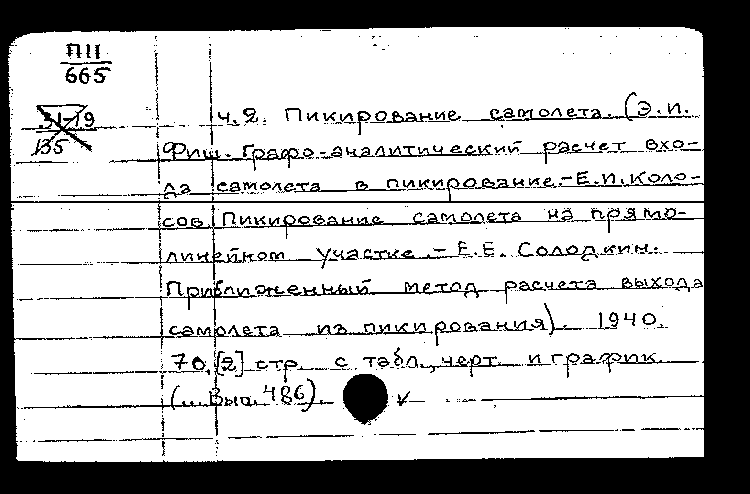 ПII
665
31-19
135
ч.2. Пикирование самолета. (Э.И.
Фиш. Графо-аналитический расчет вхо-
да самолета в пикирование.-Е.И.Коло-
сов. Пикирование самолета на прямо-
линейном участке.-Е.Е. Солодкин.
Приближенный метод расчета выхода
самолета из пикирования). 1940.
70,[2] стр. с табл., черт. и график.
(... Вып. 486).